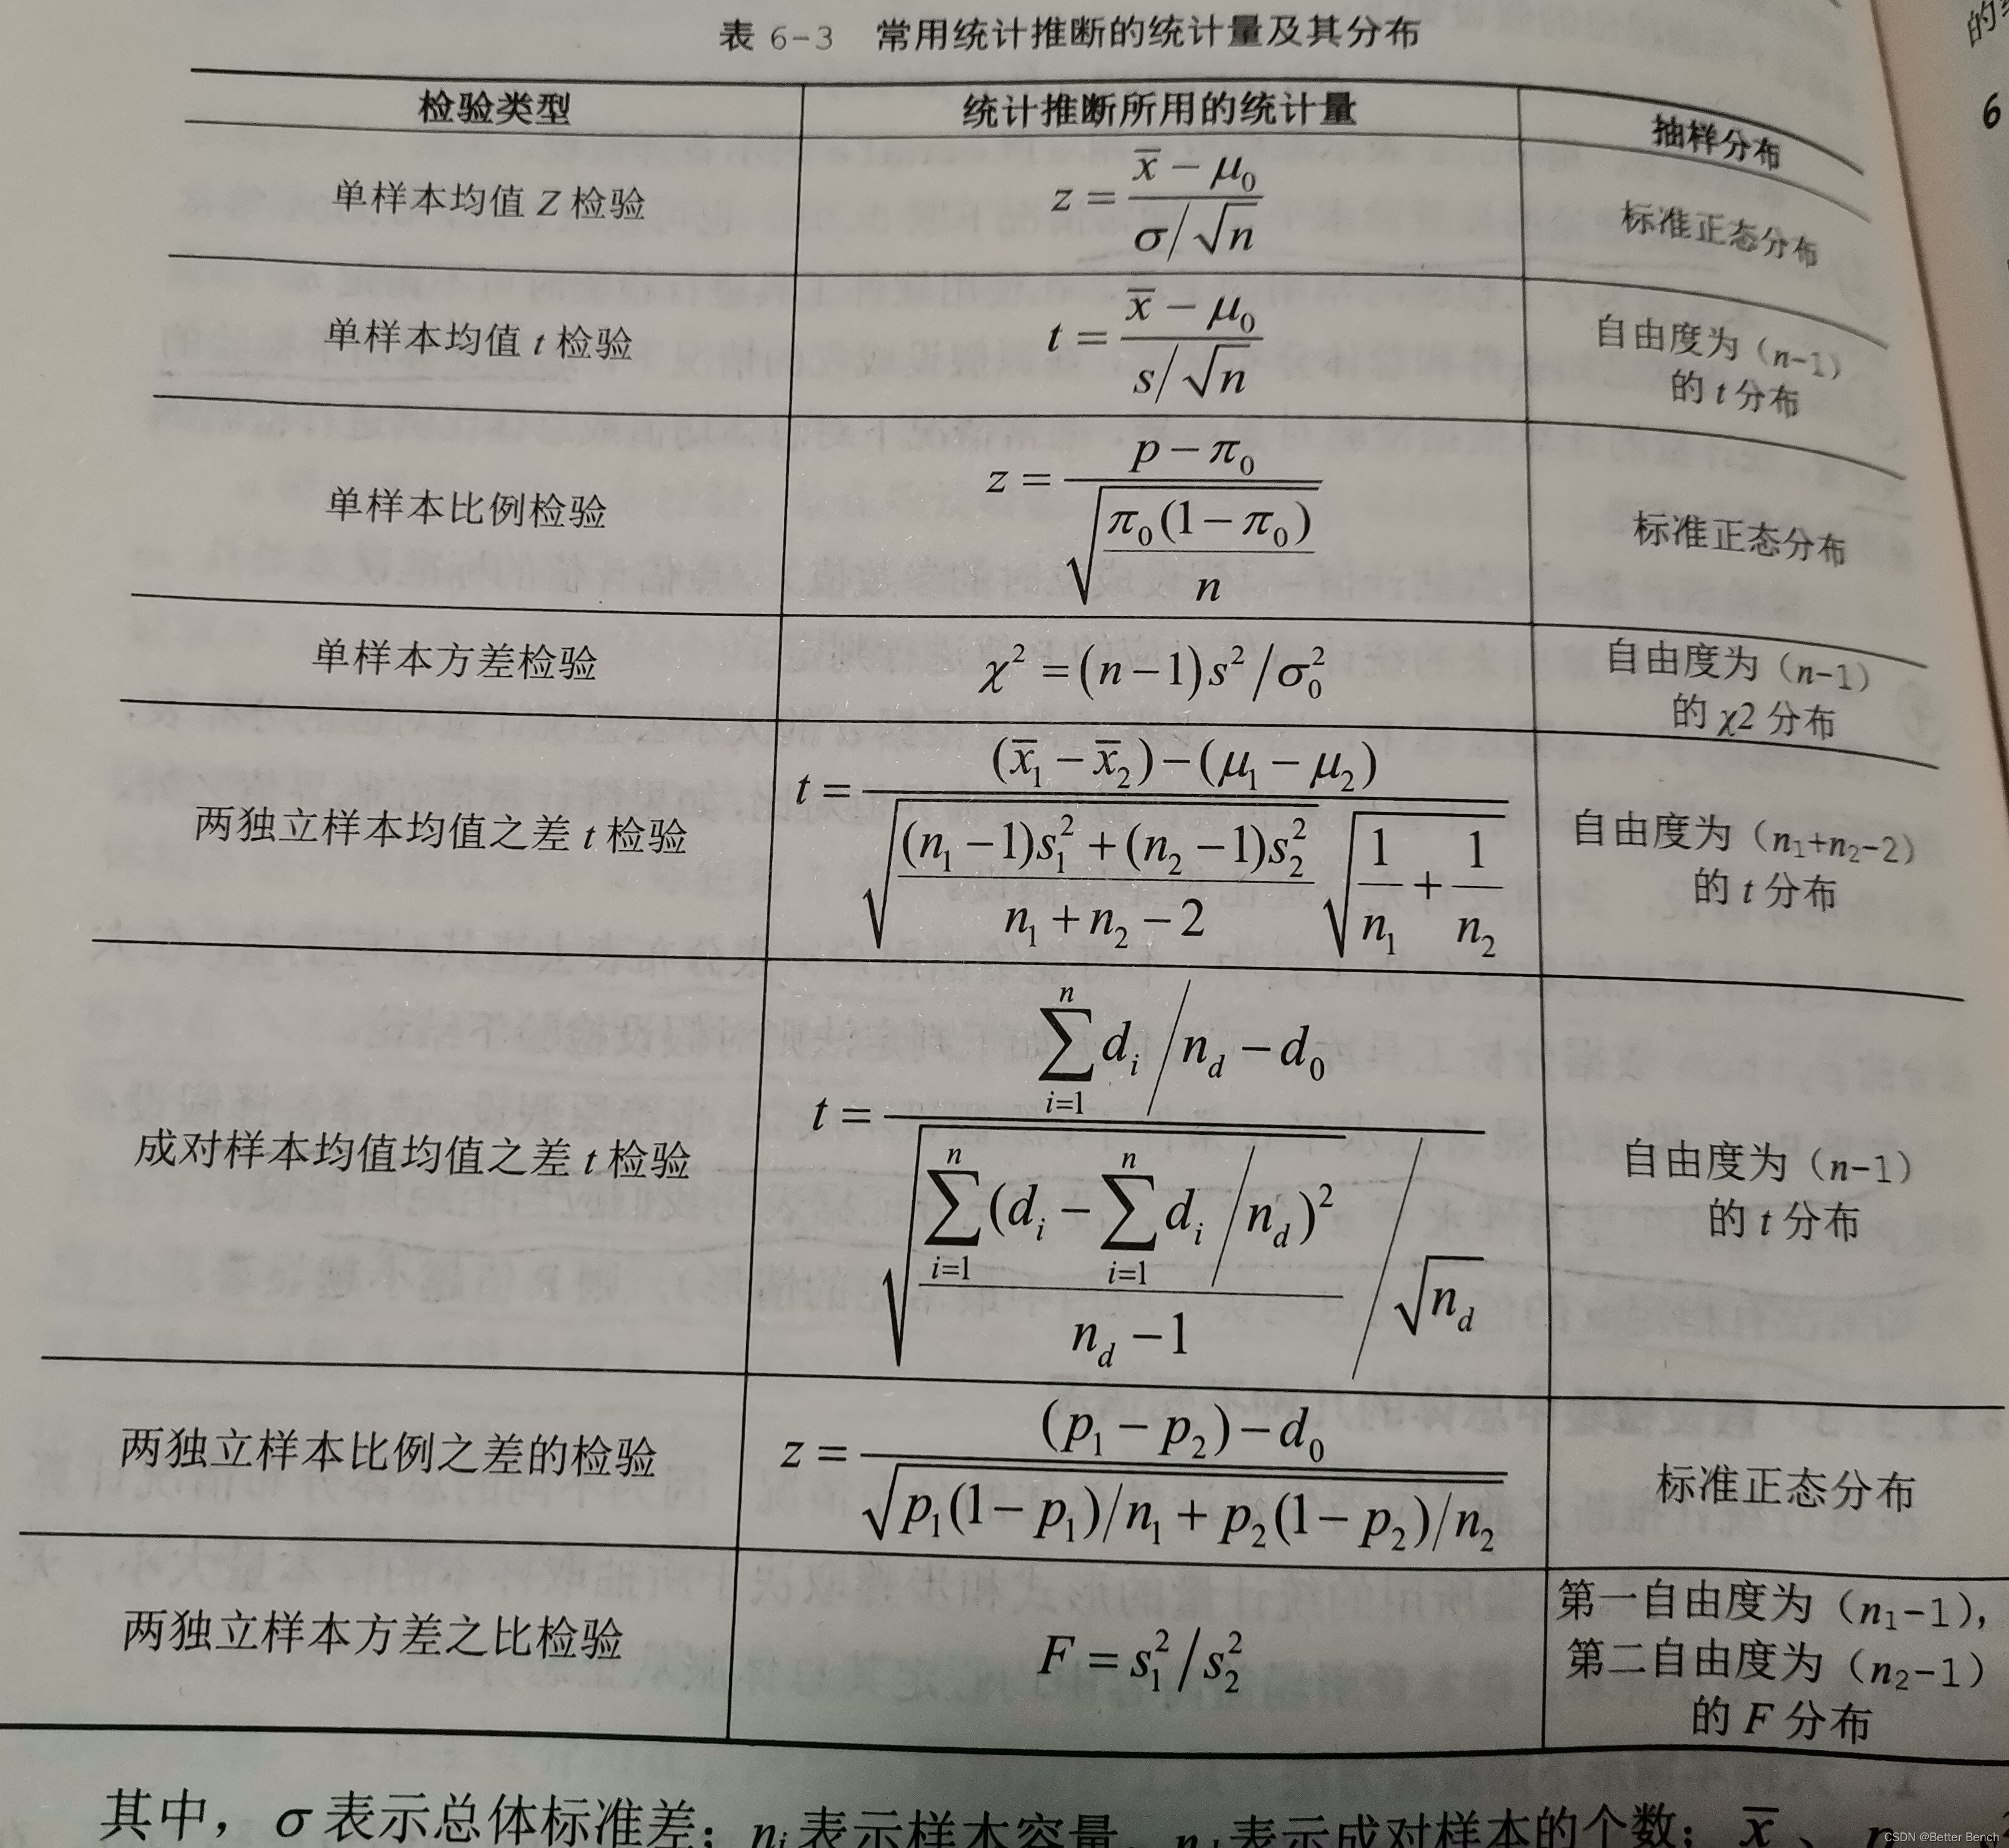 表 6-3 常用统计推断的统计量及其分布
检验类型 统计推断所用的统计量 抽样分布
单样本均值 Z 检验 z = (x̄ − μ₀) / (σ/√n) 标准正态分布
单样本均值 t 检验 t = (x̄ − μ₀) / (s/√n) 自由度为（n-1）
的 t 分布
单样本比例检验 z = (p − π₀) / √(π₀(1 − π₀) / n) 标准正态分布
单样本方差检验 χ² = (n − 1)s²/σ₀² 自由度为（n-1）
的 χ2 分布
两独立样本均值之差 t 检验 t = ((x̄₁ − x̄₂) − (μ₁ − μ₂)) / (√(((n₁ − 1)s₁² + (n₂ − 1)s₂²) / (n₁ + n₂ − 2)) √(1/n₁ + 1/n₂)) 自由度为（n₁+n₂-2）
的 t 分布
成对样本均值均值之差 t 检验 t = (∑ᵢ₌₁ⁿ dᵢ / n_d − d₀) / (√(∑ᵢ₌₁ⁿ (dᵢ − ∑ᵢ₌₁ⁿ dᵢ / n_d)² / (n_d − 1)) / √n_d) 自由度为（n-1）
的 t 分布
两独立样本比例之差的检验 z = ((p₁ − p₂) − d₀) / √(p₁(1 − p₁)/n₁ + p₂(1 − p₂)/n₂) 标准正态分布
两独立样本方差之比检验 F = s₁²/s₂² 第一自由度为（n₁-1），
第二自由度为（n₂-1）
的 F 分布
其中，σ 表示总体标准差；nᵢ 表示样本容量，n_d 表示成对样本的个数；x̄、
的
6
CSDN @Better Bench